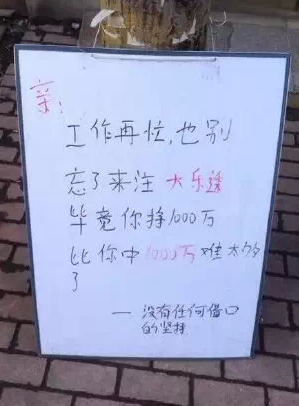 亲:
工作再忙,也别
忘了来注大乐透
毕竟你挣1000万
比你中1000万难太多
了
——没有任何借口
的坚持